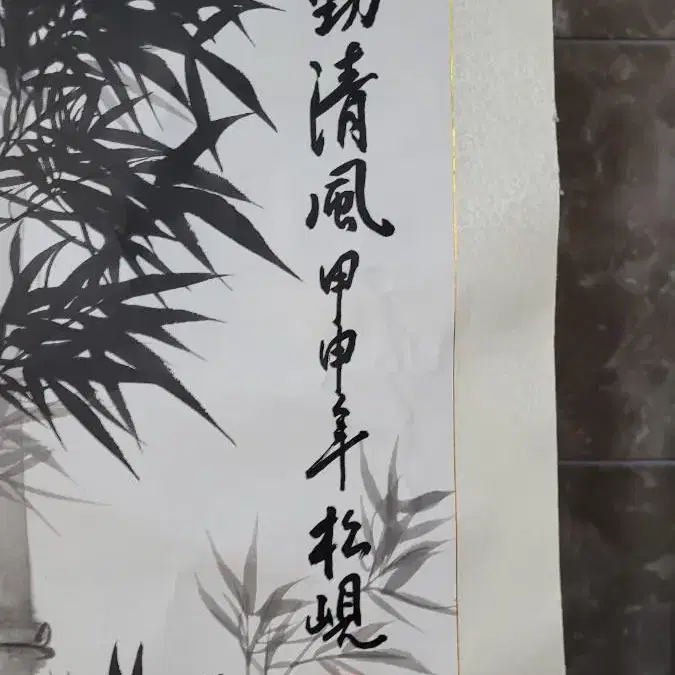 勁清風甲申年松峴